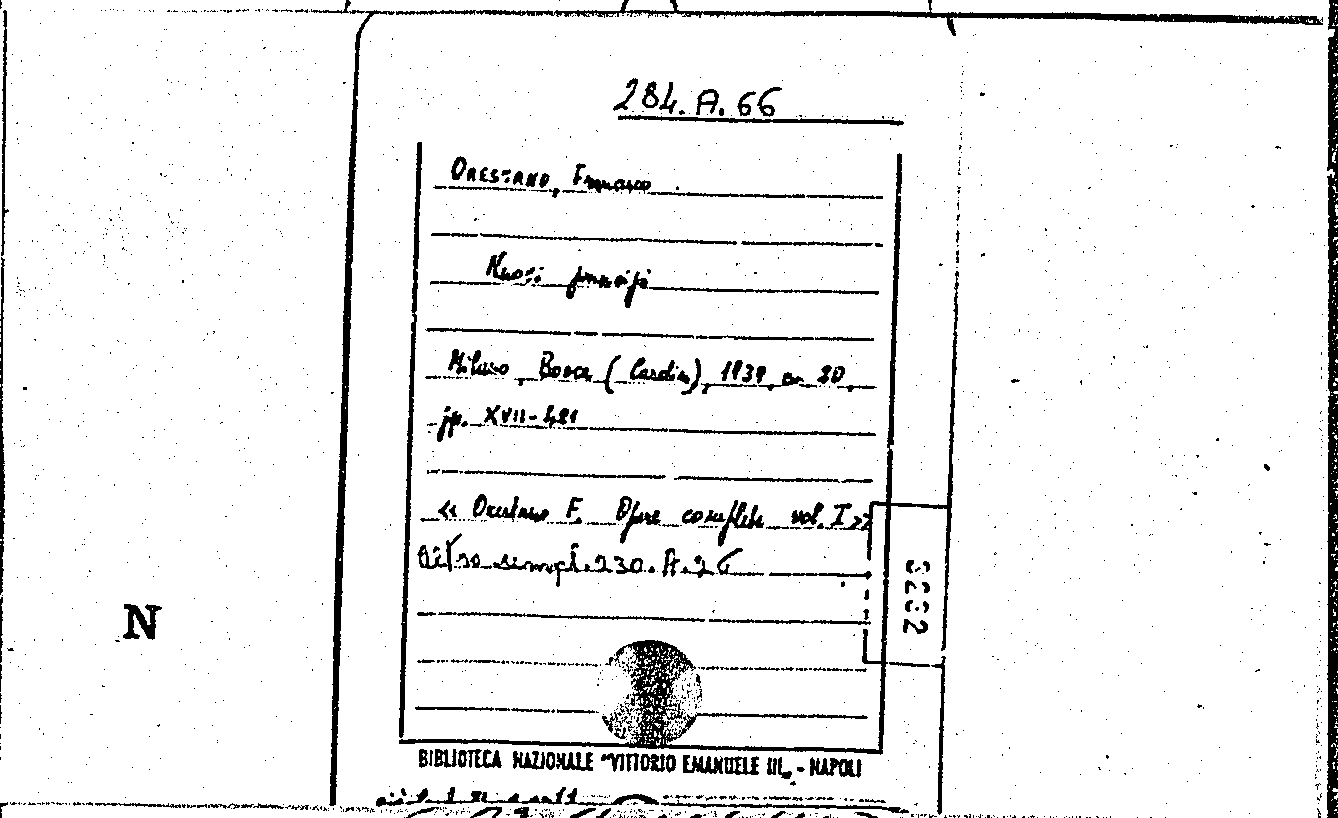 284. A. 66
Orestano, Francesco
Nuovi principi
Milano, Bocca ( Cardin), 1939, in 80,
pp. XVII-421
« Orestano F. Opere complete vol. I»
Altro esempl. 230. A. 26
N
BIBLIOTECA NAZIONALE "VITTORIO EMANUELE III„ - NAPOLI